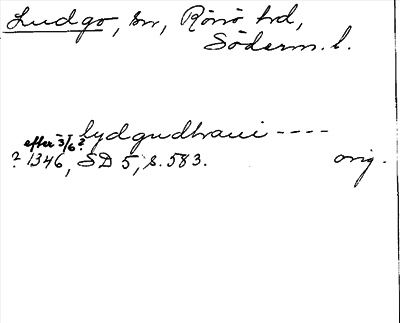 Ludgo, sn, Rönö hd,
Söderm. l.
- - lydgudhraui - - - -
efter 3/6 ?
? 1346, SD 5, s. 583. orig.